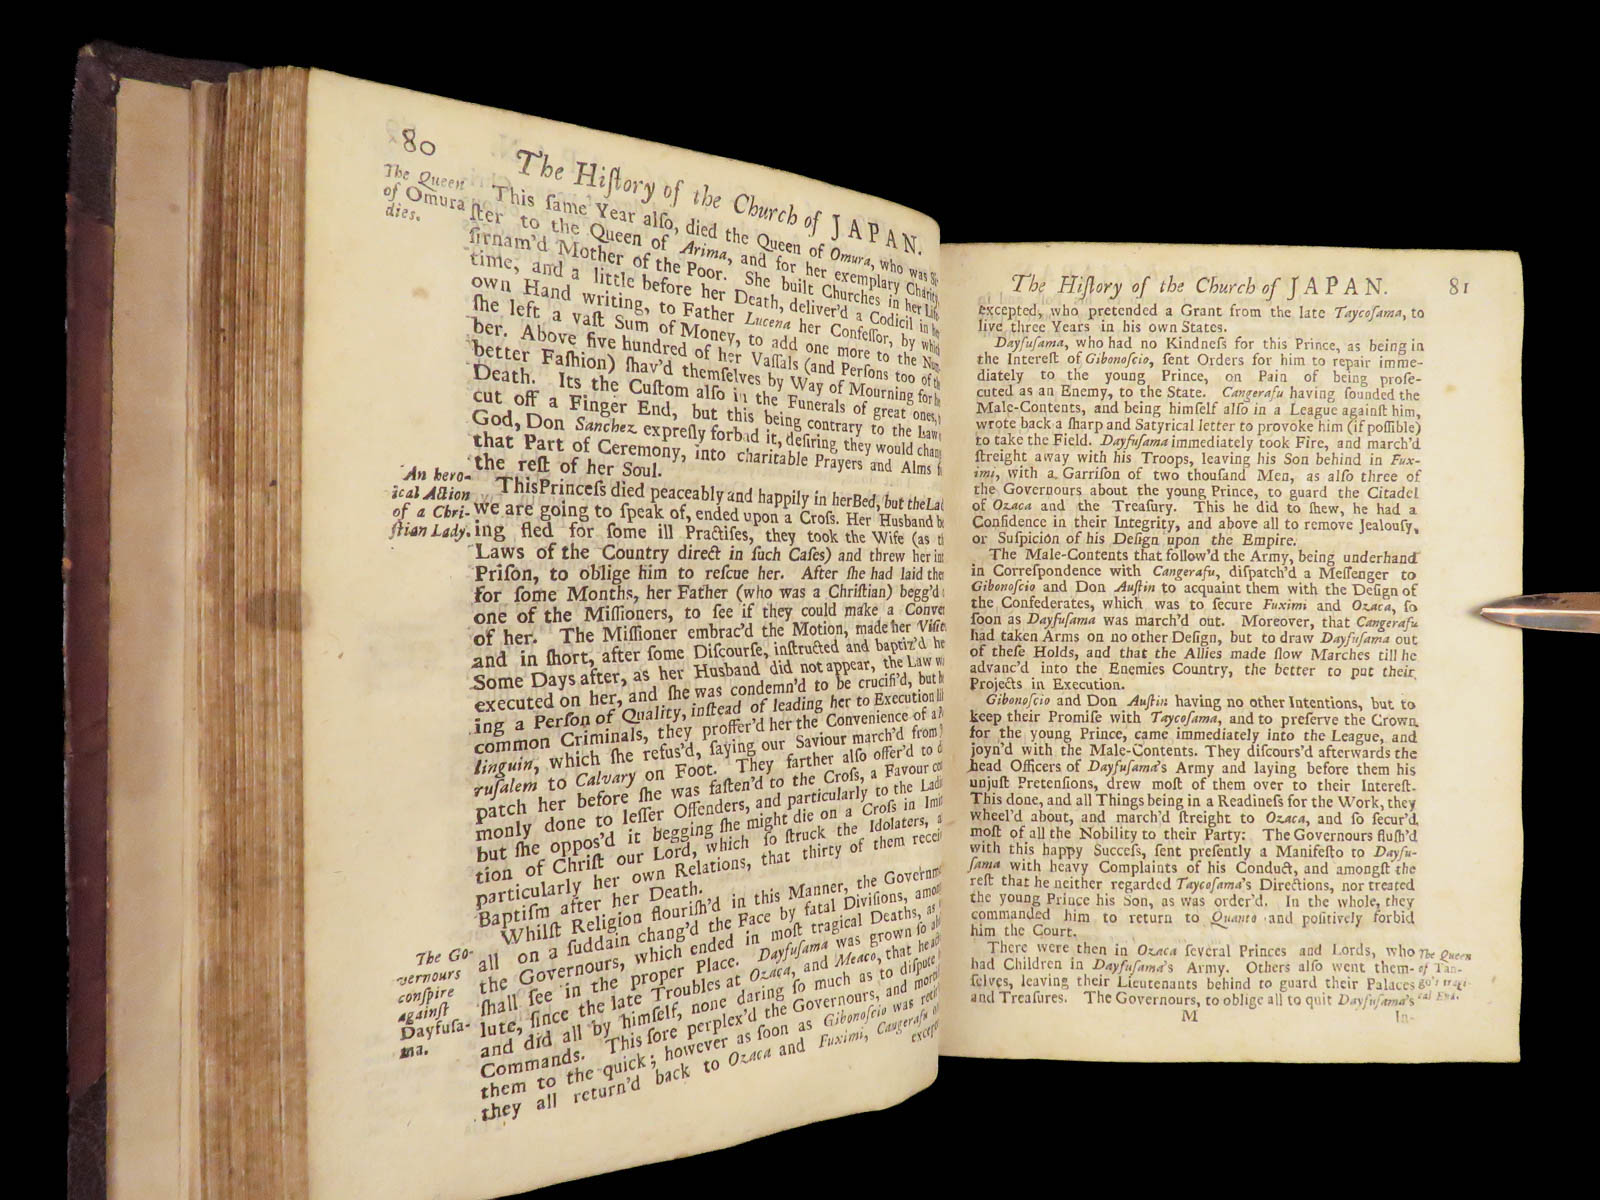 80
The Hiſtory of the Church of JAPAN.
The Queen
of Omura
dies.
This ſame Year alſo, died the Queen of Omura, who was Si-
ſter to the Queen of Arima, and for her exemplary Charity,
ſirnam'd Mother of the Poor. She built Churches in her Life
time, and a little before her Death, deliver'd a Codicil in her
own Hand writing, to Father Lucena her Confeſſor, by which
ſhe left a vaſt Sum of Money, to add one more to the Num-
ber. Above five hundred of her Vaſſals (and Perſons too of the
better Faſhion) ſhav'd themſelves by Way of Mourning for her
Death. Its the Cuſtom alſo in the Funerals of great ones,
cut off a Finger End, but this being contrary to the Law
God, Don Sanchez expreſly forbad it, deſiring they would chan
that Part of Ceremony, into charitable Prayers and Alms
the reſt of her Soul.
An hero-
ical Action
of a Chri-
ſtian Lady.
This Princeſs died peaceably and happily in her Bed, but the Lad
we are going to ſpeak of, ended upon a Croſs. Her Husband be
ing fled for ſome ill Practiſes, they took the Wife (as th
Laws of the Country direct in ſuch Caſes) and threw her in
Priſon, to oblige him to reſcue her. After ſhe had laid ther
for ſome Months, her Father (who was a Chriſtian) begg'd
one of the Miſſioners, to ſee if they could make a Conver
of her. The Miſſioner embrac'd the Motion, made her Viſite
and in ſhort, after ſome Diſcourſe, inſtructed and baptiz'd he
Some Days after, as her Husband did not appear, the Law w
executed on her, and ſhe was condemn'd to be crucifi'd, but be
ing a Perſon of Quality, inſtead of leading her to Execution li
common Criminals, they proffer'd her the Convenience of a
linguin, which ſhe refus'd, ſaying our Saviour march'd from
ruſalem to Calvary on Foot. They farther alſo offer'd to d
patch her before ſhe was faſten'd to the Croſs, a Favour co
monly done to leſſer Offenders, and particularly to the Ladi
but ſhe oppos'd it begging ſhe might die on a Croſs in Imit
tion of Chriſt our Lord, which ſo ſtruck the Idolaters, a
particularly her own Relations, that thirty of them recei
Baptiſm after her Death.
The Go-
vernours
conſpire
againſt
Dayfuſa-
ma.
Whilſt Religion flouriſh'd in this Manner, the Governme
all on a ſuddain chang'd the Face by fatal Diviſions, among
the Governours, which ended in moſt tragical Deaths, as
ſhall ſee in the proper Place. Dayfuſama was grown ſo ab
lute, ſince the late Troubles at Ozaca, and Meaco, that he
and did all by himſelf, none daring ſo much as to diſpute
Commands. This ſore perplex'd the Governours, and mort
them to the quick; however as ſoon as Gibonoſcio was
they all return'd back to Ozaca and Fuximi, Cangeraſu
except
The Hiſtory of the Church of JAPAN.
81
excepted, who pretended a Grant from the late Taycoſama, to
live three Years in his own States.
Dayfuſama, who had no Kindneſs for this Prince, as being in
the Intereſt of Gibonoſcio, ſent Orders for him to repair imme-
diately to the young Prince, on Pain of being proſe-
cuted as an Enemy, to the State. Cangeraſu having ſounded the
Male-Contents, and being himſelf alſo in a League againſt him,
wrote back a ſharp and Satyrical letter to provoke him (if poſſible)
to take the Field. Dayfuſama immediately took Fire, and march'd
ſtreight away with his Troops, leaving his Son behind in Fux-
imi, with a Garriſon of two thouſand Men, as alſo three of
the Governours about the young Prince, to guard the Citadel
of Ozaca and the Treaſury. This he did to ſhew, he had a
Confidence in their Integrity, and above all to remove Jealouſy,
or Suſpicion of his Deſign upon the Empire.
The Male-Contents that follow'd the Army, being underhand
in Correſpondence with Cangeraſu, diſpatch'd a Meſſenger to
Gibonoſcio and Don Auſtin to acquaint them with the Deſign of
the Confederates, which was to ſecure Fuximi and Ozaca, ſo
ſoon as Dayfuſama was march'd out. Moreover, that Cangeraſu
had taken Arms on no other Deſign, but to draw Dayfuſama out
of theſe Holds, and that the Allies made ſlow Marches till he
advanc'd into the Enemies Country, the better to put their
Projects in Execution.
Gibonoſcio and Don Auſtin having no other Intentions, but to
keep their Promiſe with Taycoſama, and to preſerve the Crown
for the young Prince, came immediately into the League, and
joyn'd with the Male-Contents. They diſcours'd afterwards the
head Officers of Dayfuſama's Army and laying before them his
unjuſt Pretenſions, drew moſt of them over to their Intereſt.
This done, and all Things being in a Readineſs for the Work, they
wheel'd about, and march'd ſtreight to Ozaca, and ſo ſecur'd
moſt of all the Nobility to their Party: The Governours fluſh'd
with this happy Succeſs, ſent preſently a Manifeſto to Dayfu-
ſama with heavy Complaints of his Conduct, and amongſt the
reſt that he neither regarded Taycoſama's Directions, nor treated
the young Prince his Son, as was order'd. In the whole, they
commanded him to return to Quanto and poſitively forbid
him the Court.
There were then in Ozaca ſeveral Princes and Lords, who
had Children in Dayfuſama's Army. Others alſo went them-
ſelves, leaving their Lieutenants behind to guard their Palaces
and Treaſures. The Governours, to oblige all to quit Dayfuſama's
The Queen
of Tan-
go's tragi-
cal End.
M
In-